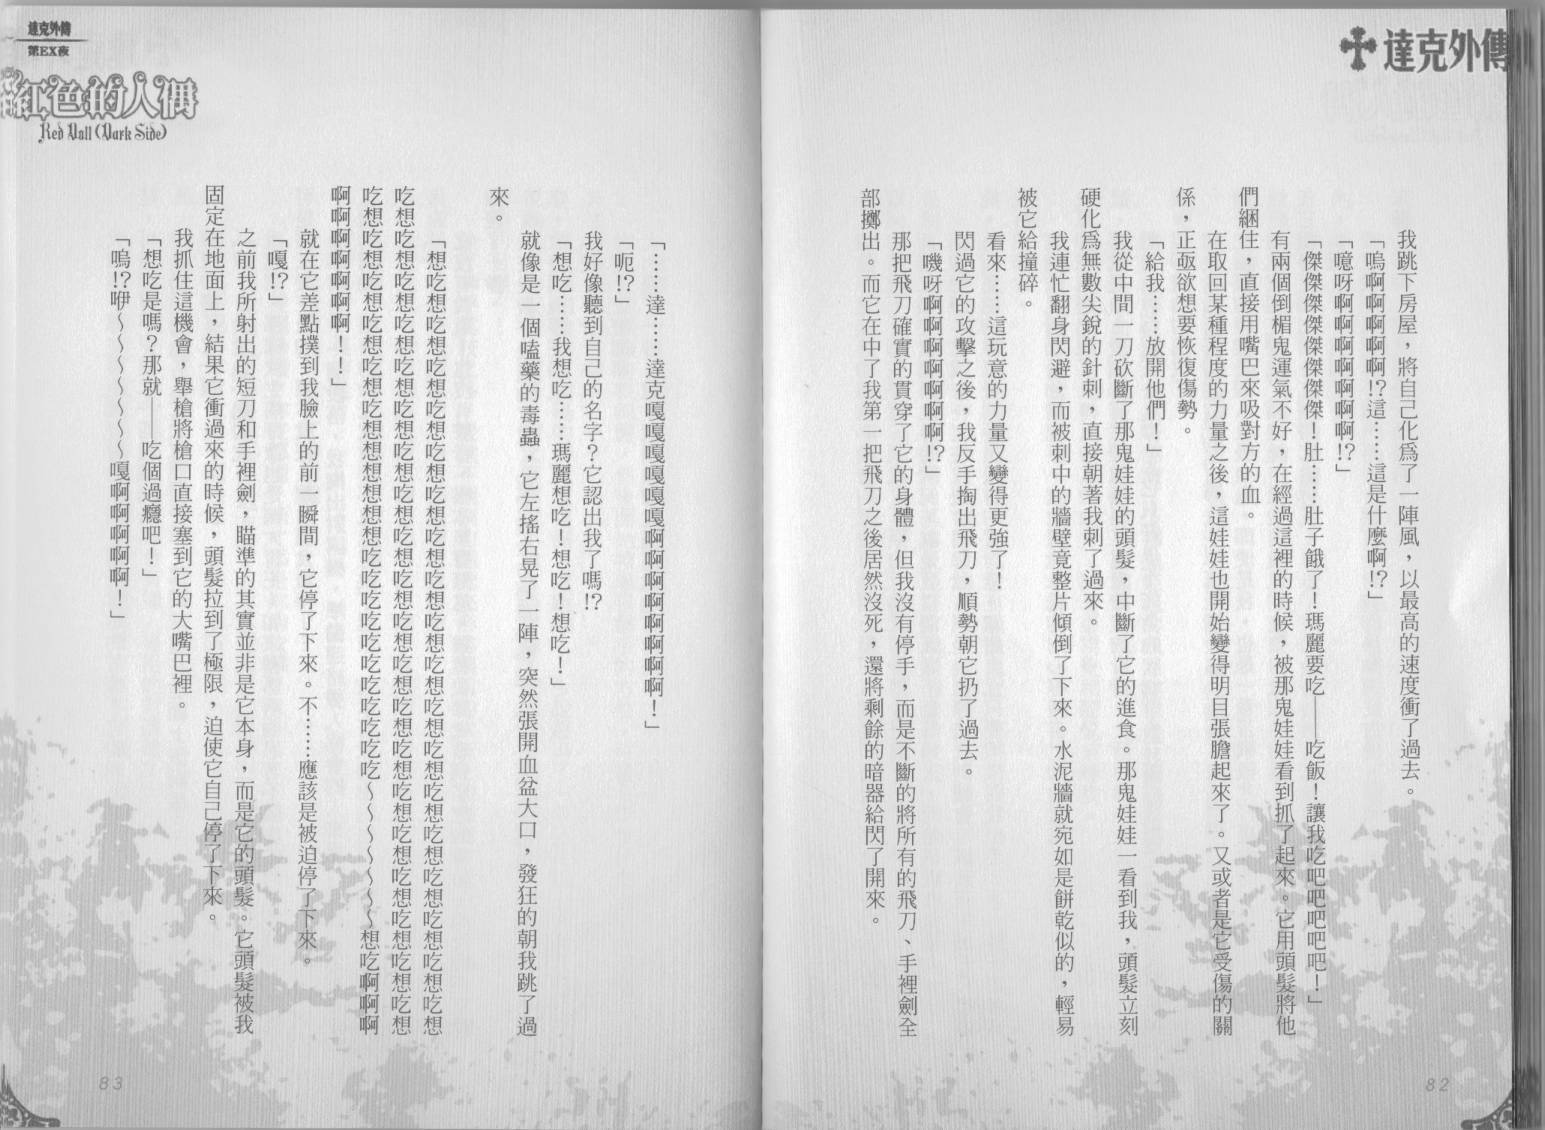 達克外傳
我跳下房屋，將自己化為了一陣風，以最高的速度衝了過去。
「嗚啊啊啊啊啊!?這……這是什麼啊!?」
「噫呀啊啊啊啊啊啊啊!?」
「傑傑傑傑傑傑傑傑！肚……肚子餓了！瑪麗要吃——吃飯！讓我吃吧吧吧吧吧！」
有兩個倒楣鬼運氣不好，在經過這裡的時候，被那鬼娃娃看到抓了起來。它用頭髮將他
們綑住，直接用嘴巴來吸對方的血。
在取回某種程度的力量之後，這娃娃也開始變得明目張膽起來了。又或者是它受傷的關
係，正亟欲想要恢復傷勢。
「給我……放開他們！」
我從中間一刀砍斷了那鬼娃娃的頭髮，中斷了它的進食。那鬼娃娃一看到我，頭髮立刻
硬化為無數尖銳的針刺，直接朝著我刺了過來。
我連忙翻身閃避，而被刺中的牆壁竟整片傾倒了下來。水泥牆就宛如是餅乾似的，輕易
被它給撞碎。
看來……這玩意的力量又變得更強了！
閃過它的攻擊之後，我反手掏出飛刀，順勢朝它扔了過去。
「嘰呀啊啊啊啊啊啊啊啊!?」
那把飛刀確實的貫穿了它的身體，但我沒有停手，而是不斷的將所有的飛刀、手裡劍全
部擲出。而它在中了我第一把飛刀之後居然沒死，還將剩餘的暗器給閃了開來。
82
達克外傳
第EX夜
紅色的人偶
Red Doll (Dark Side)
「……達……達克嘎嘎嘎嘎嘎嘎啊啊啊啊啊啊啊啊！」
「呃!?」
我好像聽到自己的名字？它認出我了嗎!?
「想吃……我想吃……瑪麗想吃！想吃！想吃！」
就像是一個嗑藥的毒蟲，它左搖右晃了一陣，突然張開血盆大口，發狂的朝我跳了過
來。
「想吃想吃想吃想吃想吃想吃想吃想吃想吃想吃想吃想吃想吃想吃想吃想吃想吃想吃想
吃想吃想吃想吃想吃想吃想吃想吃想吃想吃想吃想吃想吃想吃想吃想吃想吃想吃想吃想
吃想吃想吃想吃想吃想吃想想想想想想吃吃吃吃吃吃吃吃吃吃吃～～～～～～～想吃啊啊啊
啊啊啊啊啊啊啊！！」
就在它差點撲到我臉上的前一瞬間，它停了下來。不……應該是被迫停了下來。
「嘎!?」
之前我所射出的短刀和手裡劍，瞄準的其實並非是它本身，而是它的頭髮。它頭髮被我
固定在地面上，結果它衝過來的時候，頭髮拉到了極限，迫使它自己停了下來。
我抓住這機會，舉槍將槍口直接塞到它的大嘴巴裡。
「想吃是嗎？那就——吃個過癮吧！」
「嗚!?咿～～～～～～～嘎啊啊啊啊啊！」
83